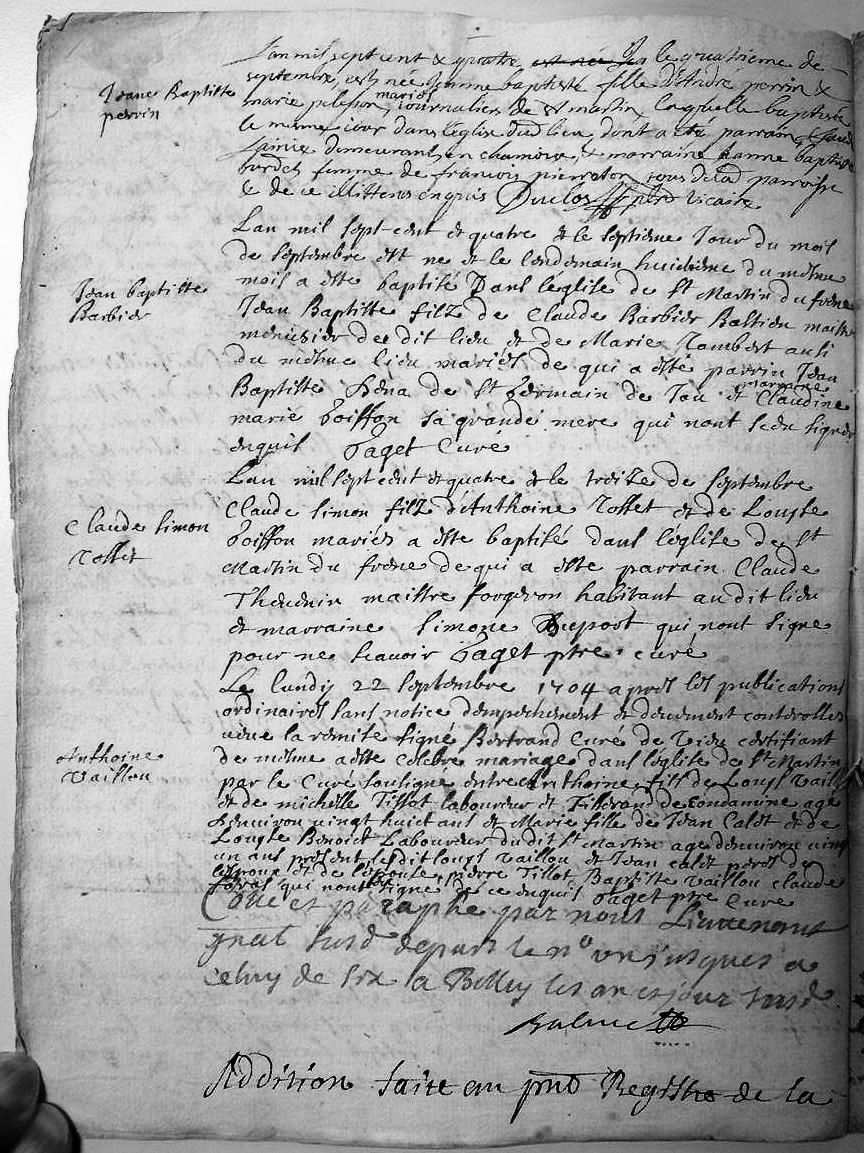 Jeane Baptiste
perrin
L'an mil sept cent & quatre le quatrieme de
septembre, est née Jeanne baptiste fille D'André perrin &
marie mariés journaliers de st martin, laquelle baptisée
le mesme iour dans l'église dud lieu, dont a été parrain
demeurant en & marraine Janne baptiste
femme de françois pierreton tous de lad parroisse
& de ce illitterés enquis Duclos vicaire
Jean baptiste
Barbier
Lan mil sept cent et quatre & le septieme Jour du mois
de septembre est ne et le lendemain huictieme du mesme
mois a este baptisé Dans leglise de st Martin du frene
Jean Baptiste filz de Claude Barbier Bastien maitre
menusier de dit lieu et de Marie Jombert ausi
du mesme lieu mariés de qui a esté parrin Jean
Baptiste de st Germain de Jou et marraine Claudine
marie Goiffon sa grande mere qui nont sceu signer
enquis Paget Curé
Claude Simon
Rosset
Lan mil sept cent et quatre & le treize de septembre
Claude Simon filz d'Anthoine Rosset et de Louyse
Goiffon mariés a este baptisé dans l'église de st
Martin du frene de qui a este parrain Claude
Thevenin maistre forgeron habitant audit lieu
et marraine Simone Dupont qui nont signe
pour ne scavoir Paget ptre curé
Anthoine
Vaillou
Le lundy 22 septembre 1704 apres les publications
ordinaires sans notice dempechement et deuement controllees
veue la remise signé Bertrand Curé de Vieu certifiant
de mesme a este celebre mariage dans l'église de st Martin
par le Curé sousigne entre Anthoine fils de Louys Vaillou
et de michelle Tissot laboureur et Tisserand de Condamine age
denviron vingt huict ans et Marie fille de Jean Calet et de
Louyse Benoict Laboureur dudit st Martin age denviron vingt
un ans présent lesdit louys Vaillou et Jean calet peres de
lespoux et de lespouse, pierre Tissot Baptiste Vaillou claude
qui nont signe de ce enquis Paget ptre Curé
Cotté et paraphé par nous Lieutenant
gnal susd depuis le n° un jusques a
celuy de six a Belley les an et jour susd

Addition faite au pnt Registre de la